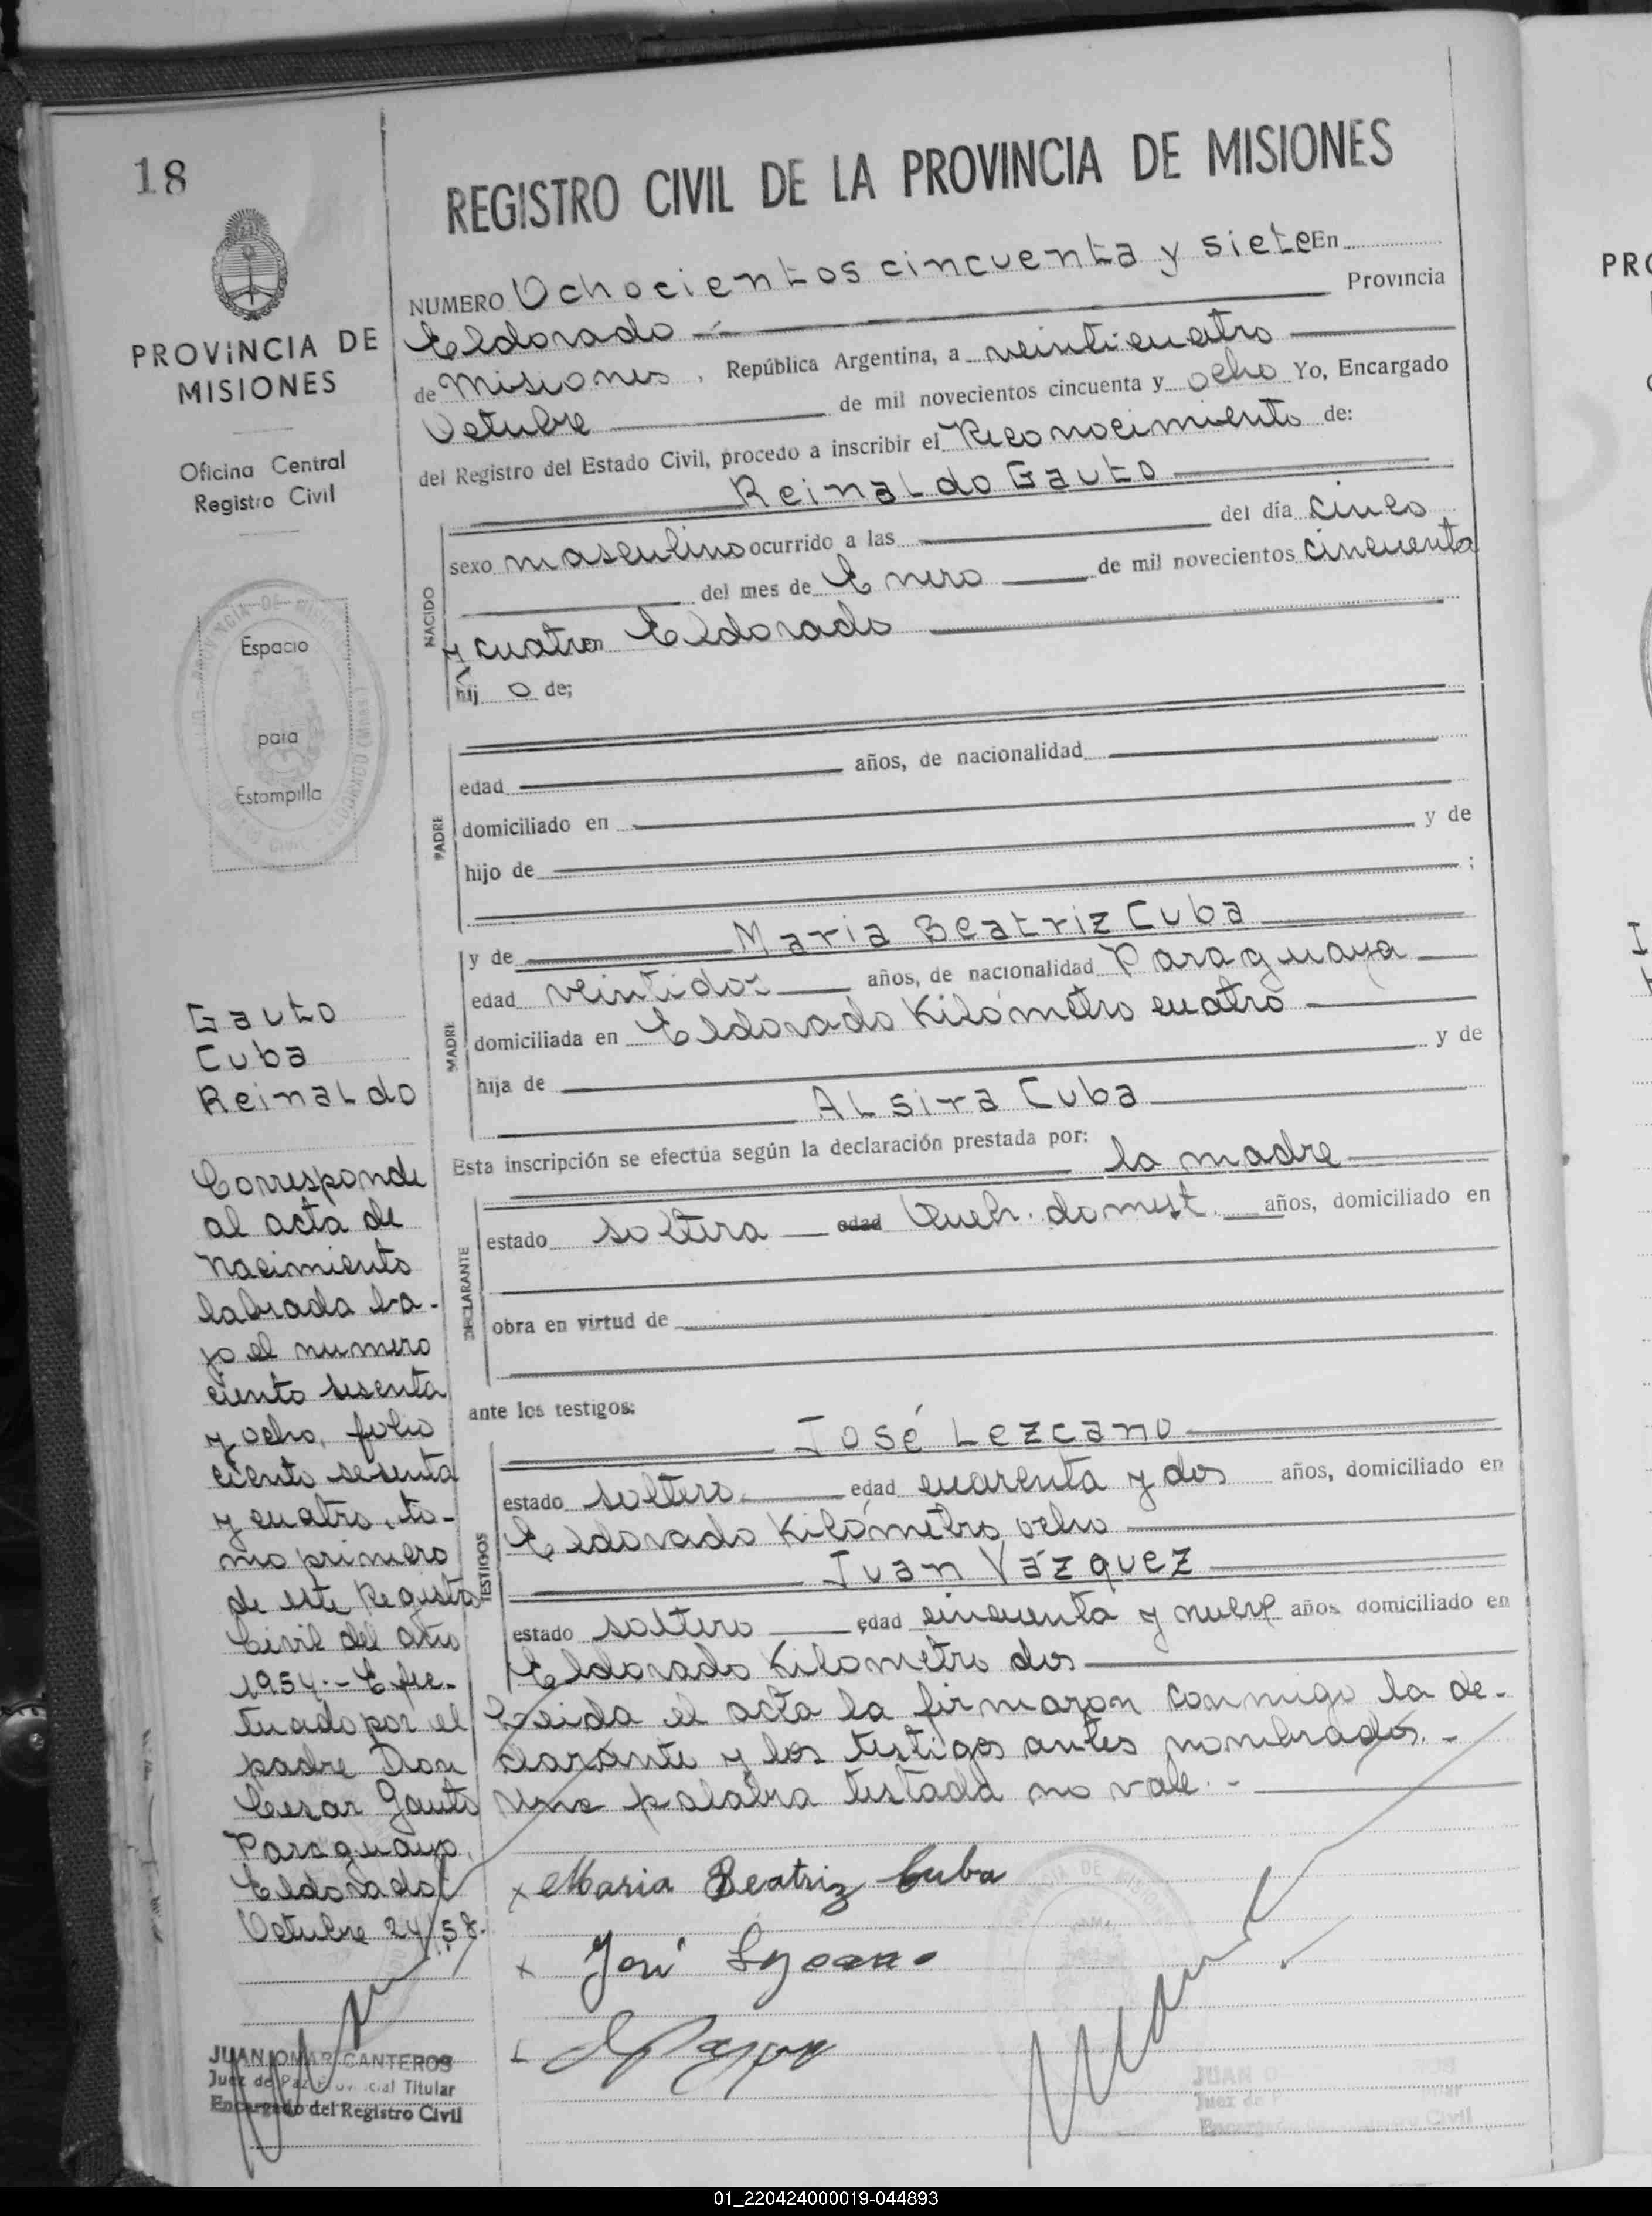 18
PROVINCIA DE
MISIONES
Oficina Central
Registro Civil
Espacio
para
Estampilla
Gauto
Cuba
Reinaldo
Corresponde
al acta de
nacimiento
labrada ba-
jo el numero
ciento sesenta
y ocho, folio
ciento sesenta
y cuatro, to-
mo primero
de este Registro
Civil del año
1954.- Efec-
tuado por el
padre Don
Cesar Gauto
Paraguayo,
Eldorado
Octubre 24/58.
JUAN OMAR CANTEROS
Juez de Paz Provincial Titular
Encargado del Registro Civil
REGISTRO CIVIL DE LA PROVINCIA DE MISIONES
NUMERO Ochocientos cincuenta y siete En
Eldorado Provincia
de Misiones, República Argentina, a veinticuatro
Octubre de mil novecientos cincuenta y ocho Yo, Encargado
del Registro del Estado Civil, procedo a inscribir el Reconocimiento de:
Reinaldo Gauto
NACIDO
sexo masculino ocurrido a las del día cinco
del mes de Enero de mil novecientos cincuenta
y cuatro en Eldorado
hij o de;
PADRE
edad años, de nacionalidad
domiciliado en
hijo de y de
;
MADRE
y de Maria Beatriz Cuba
edad veintidos años, de nacionalidad Paraguaya
domiciliada en Eldorado Kilómetro cuatro
hija de y de
Alsira Cuba
Esta inscripción se efectúa según la declaración prestada por: la madre
DECLARANTE
estado soltera edad Queh. domest. años, domiciliado en
obra en virtud de
ante los testigos:
TESTIGOS
José Lezcano
estado soltero edad cuarenta y dos años, domiciliado en
Eldorado Kilómetro ocho
Juan Vázquez
estado soltero edad cincuenta y nueve años domiciliado en
Eldorado Kilometro dos
Leida el acta la firmaron conmigo la de-
clarante y los testigos antes nombrados.-
Una palabra testada no vale.-
x Maria Beatriz Cuba
x José Lezcano
JUAN O
Juez de P
Encargado del Registro Civil
PRO
01_220424000019-044893